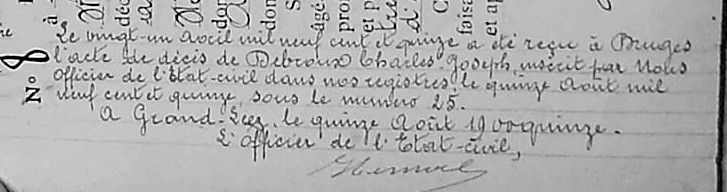 N° 8
Le vingt-un Avril mil neuf cent et quinze a été reçu à Bruges
l'acte de décès de Debroux Charles Joseph, inscrit par Nous
Officier de l'Etat-civil dans nos registres, le quinze Août mil
neuf cent et quinze, sous le numero 25.
A Grand-Leez, le quinze Août 19 voquinze.
L'Officier de l'Etat-civil,